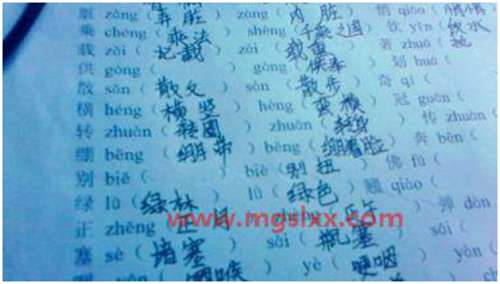 脏 zāng ( 弄脏 ) zàng ( 内脏 ) 悄 qiāo (
乘 chéng ( 乘法 ) shèng ( 千乘之国 ) 饮 yìn ( 饮水
载 zǎi ( 记载 ) zài ( 载重 ) 著 zhuó (
供 gōng ( ) gòng ( 供奉 ) 划 huá (
散 sǎn ( 散文 ) sàn ( 散步 ) 奇 qí (
横 héng ( 横竖 ) hèng ( 蛮横 ) 冠 guān (
转 zhuàn ( 转圈 ) zhuǎn ( 转身 ) 传 zhuàn (
绷 bēng ( 绷带 ) běng ( 绷着脸 ) 奔 bēn (
别 bié ( ) biè ( 别扭 ) 佛 fú (
绿 lù ( 绿林 ) lǜ ( 绿色 ) 翘 qiáo (
正 zhēng 正月 正午 弹 dàn (
www.mgslxx.com
塞 sè ( 堵塞 ) sāi ( 瓶塞 ) yuán (
咽喉 ) yè ( 哽咽